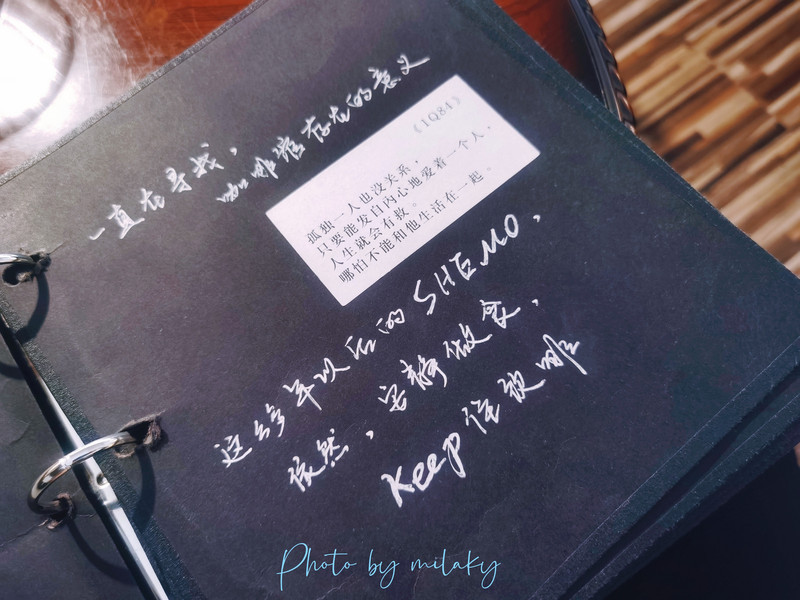 一直在寻找，
咖啡馆存在的意义
《1Q84》
孤独一人也没关系，
只要能发自内心地爱着一个人，
人生就会有救。
哪怕不能和他生活在一起。
这多年以后的 SHEMO，
依然，安静做食，
Keep 住
Photo by milaky